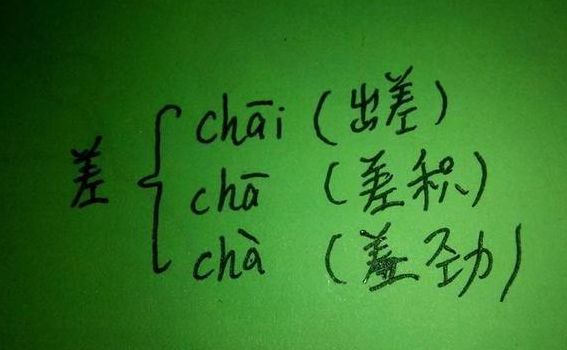 差 { chāi (出差)
chā (差积)
chà (差劲)